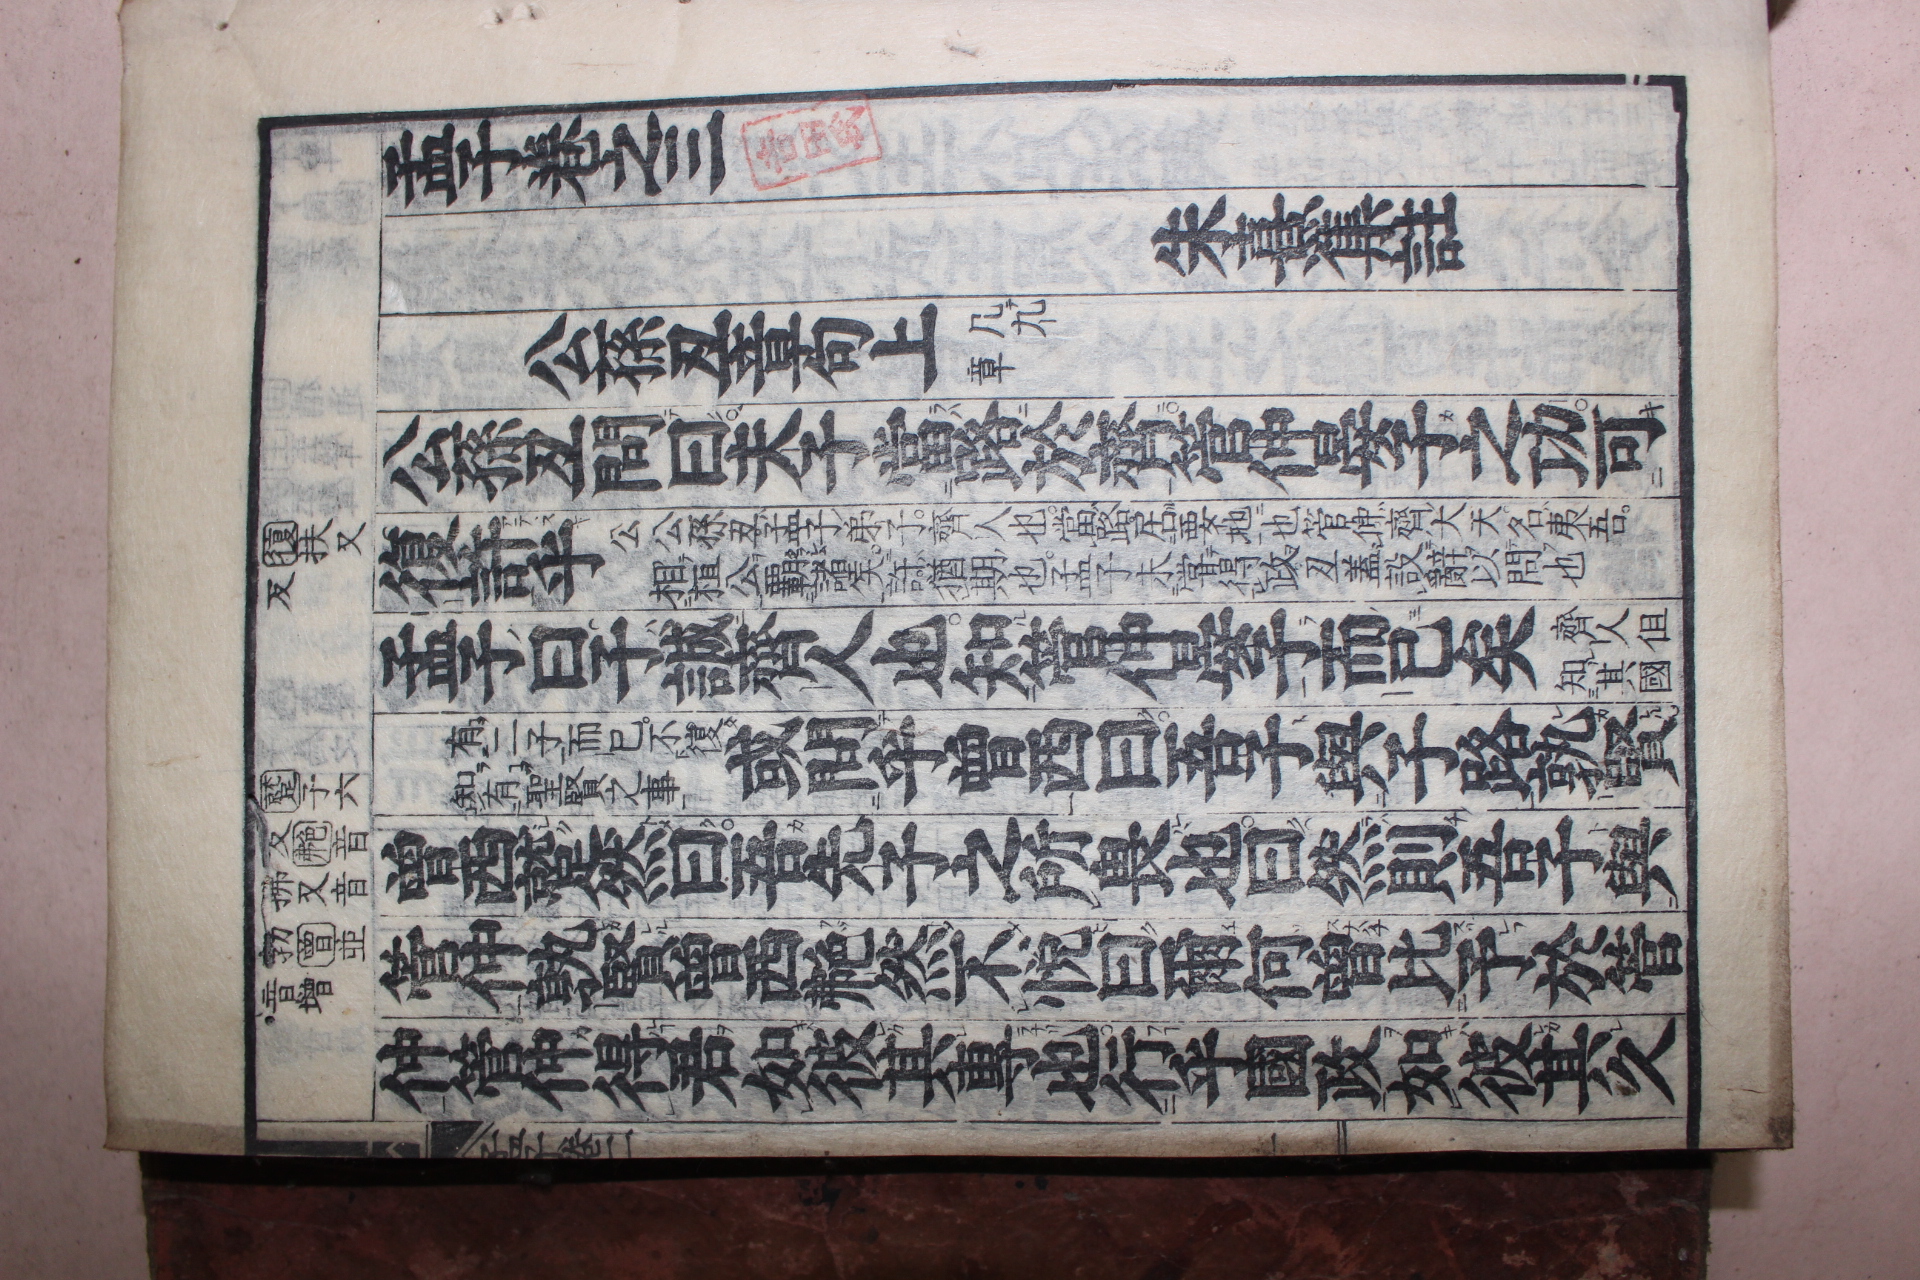 孟子卷之三
朱熹集註
公孫丑章句上
凡九
章
公孫丑問曰夫子當路於齊管仲晏子之功可
復許乎
公孫丑孟子弟子。齊人也。當路居要地也管仲齊大夫。名夷吾。
相桓公霸諸侯。許猶期也。孟子未嘗得政丑蓋設辭以問也
孟子曰子誠齊人也。知管仲晏子而已矣
齊人但
知其國
有二子而已。不復
知有聖賢之事
或問乎曾西曰吾子與子路孰賢
曾西蹵然曰。吾先子之所畏也。曰然則吾子與
管仲孰賢曾西艴然不悅曰爾何曾比予於管
仲管仲得君如彼其專也。行乎國政如彼其久
復扶又
反
蹵子六
反艴音
拂又音
勃曾並
音增。
孟子卷三
一